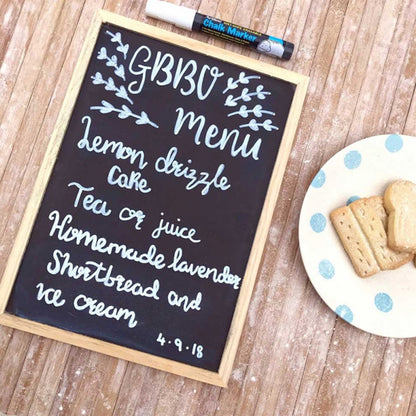 Chalk Marker
GBBO
Menu
Lemon drizzle
Cake
Tea or juice
Homemade lavender
Shortbread and
ice cream
4.9.18